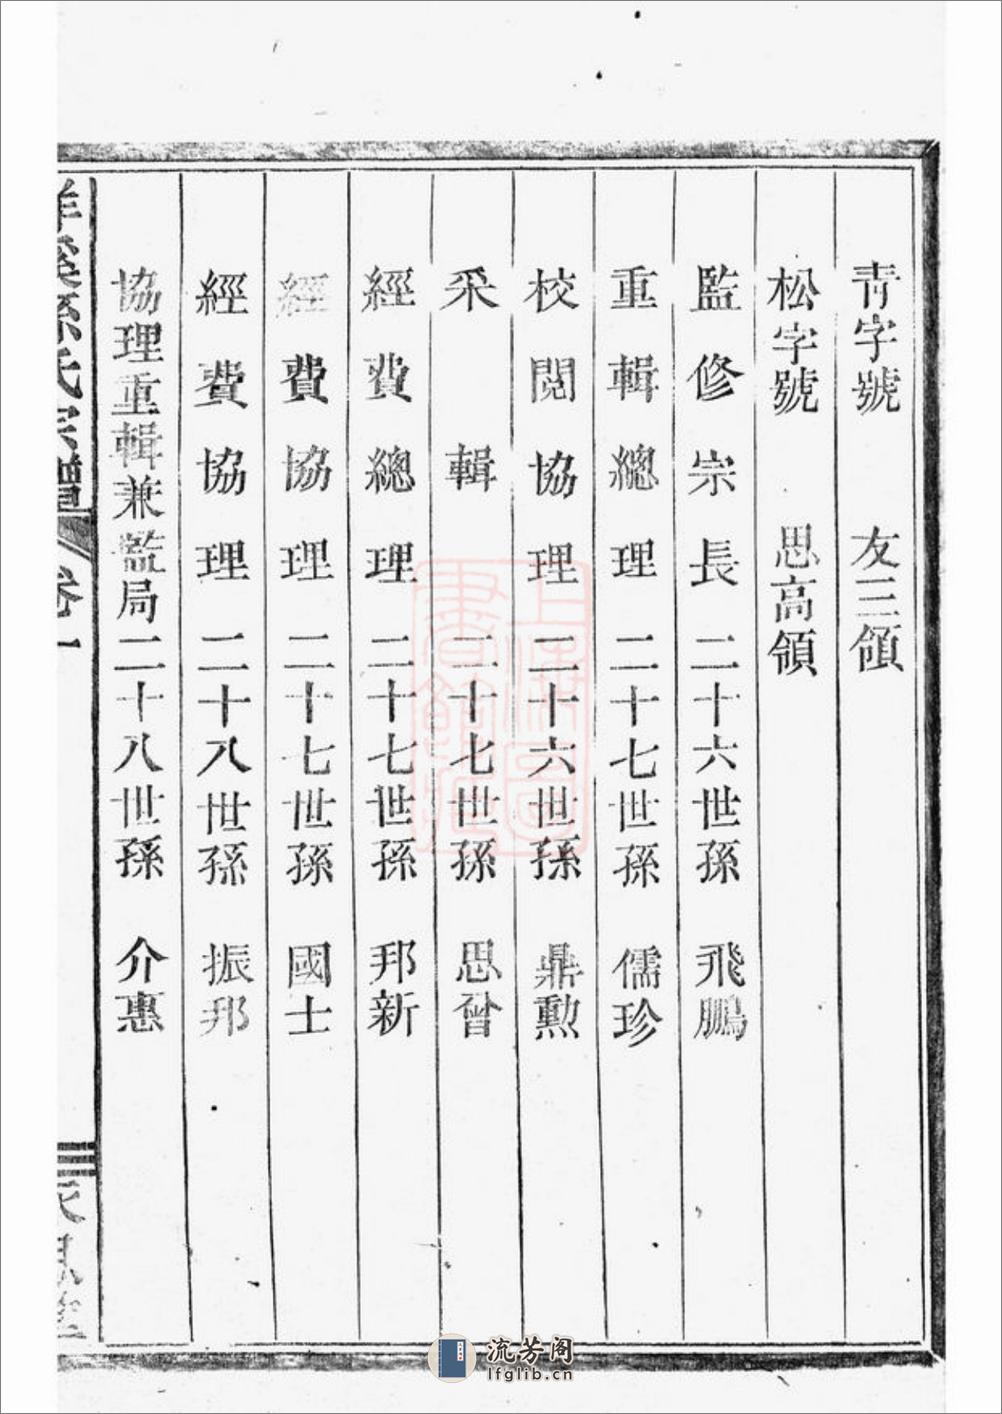 青字號 友三領
松字號 思高領
監修宗長二十六世孫 飛鵬
重輯總理二十七世孫 儒珍
校閲協理二十六世孫 鼎勲
采輯 二十七世孫 思曾
經費總理二十七世孫 邦新
經費協理二十七世孫 國士
經費協理二十八世孫 振邦
協理重輯兼監局二十八世孫 介惠
孫氏宗譜 卷一
上海圖書館藏
流芳阁
lfglib.cn